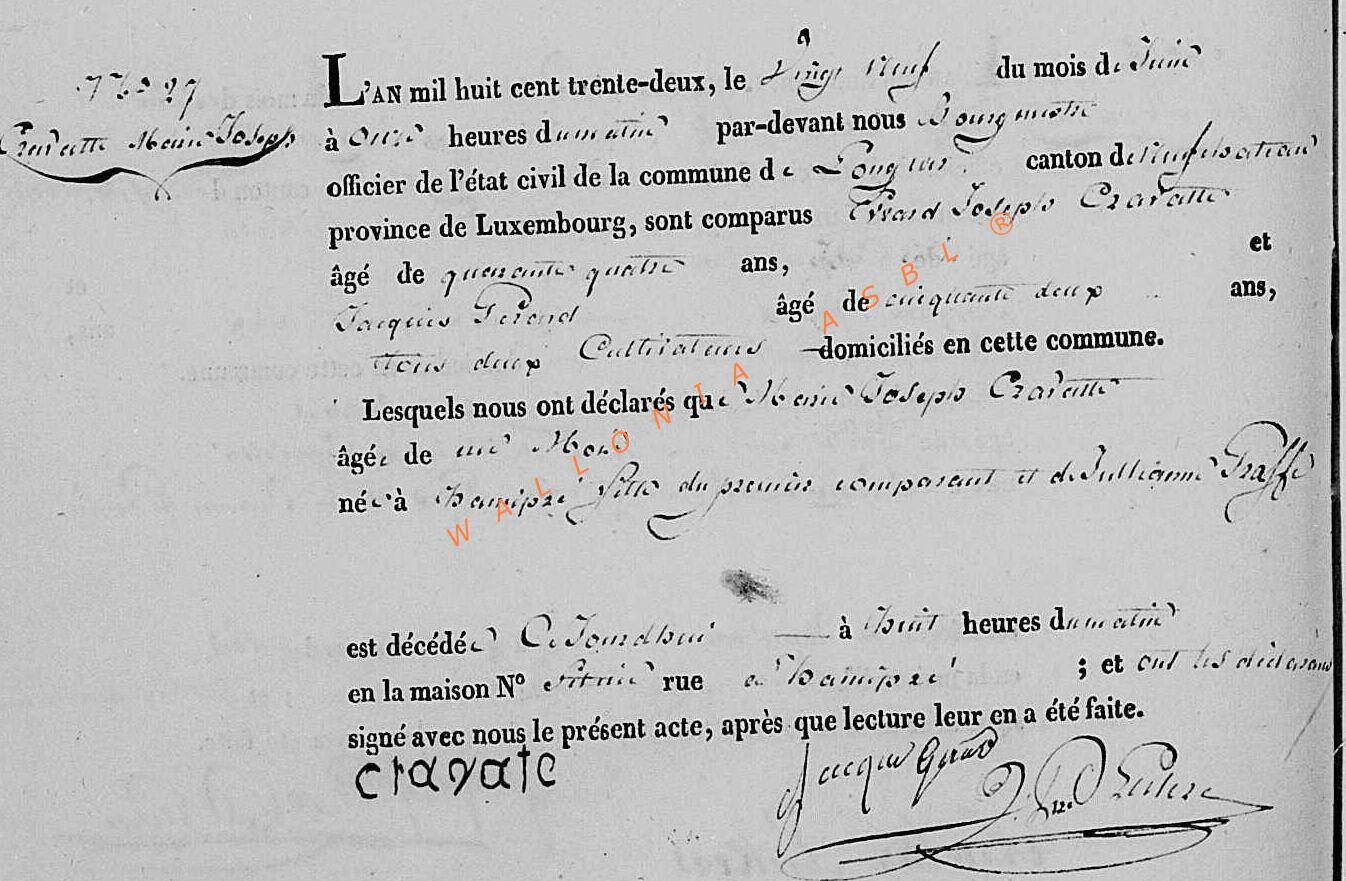 N° 27
Cravatte Marie Joseph
L'AN mil huit cent trente-deux, le Vingt neuf du mois de Juin
à onze heures du matin par-devant nous Bourgmestre
officier de l'état civil de la commune de Longlier canton de Neufchateau
province de Luxembourg, sont comparus Erard Joseph Cravatte
âgé de quarante quatre ans, et
Jacques Gerard âgé de cinquante deux ans,
tous deux Cultivateurs domiciliés en cette commune.
Lesquels nous ont déclarés que Marie Joseph Cravatte
âgée de un Mois
née à hamipré fille du premier comparant et de Jullianne Graffé
est décédée Ce Jourdhui à huit heures du matin
en la maison N° rue a hamipré ; et ont les déclarans
signé avec nous le présent acte, après que lecture leur en a été faite.
cravate Jacque Gerard
WALLONIA ASBL ®